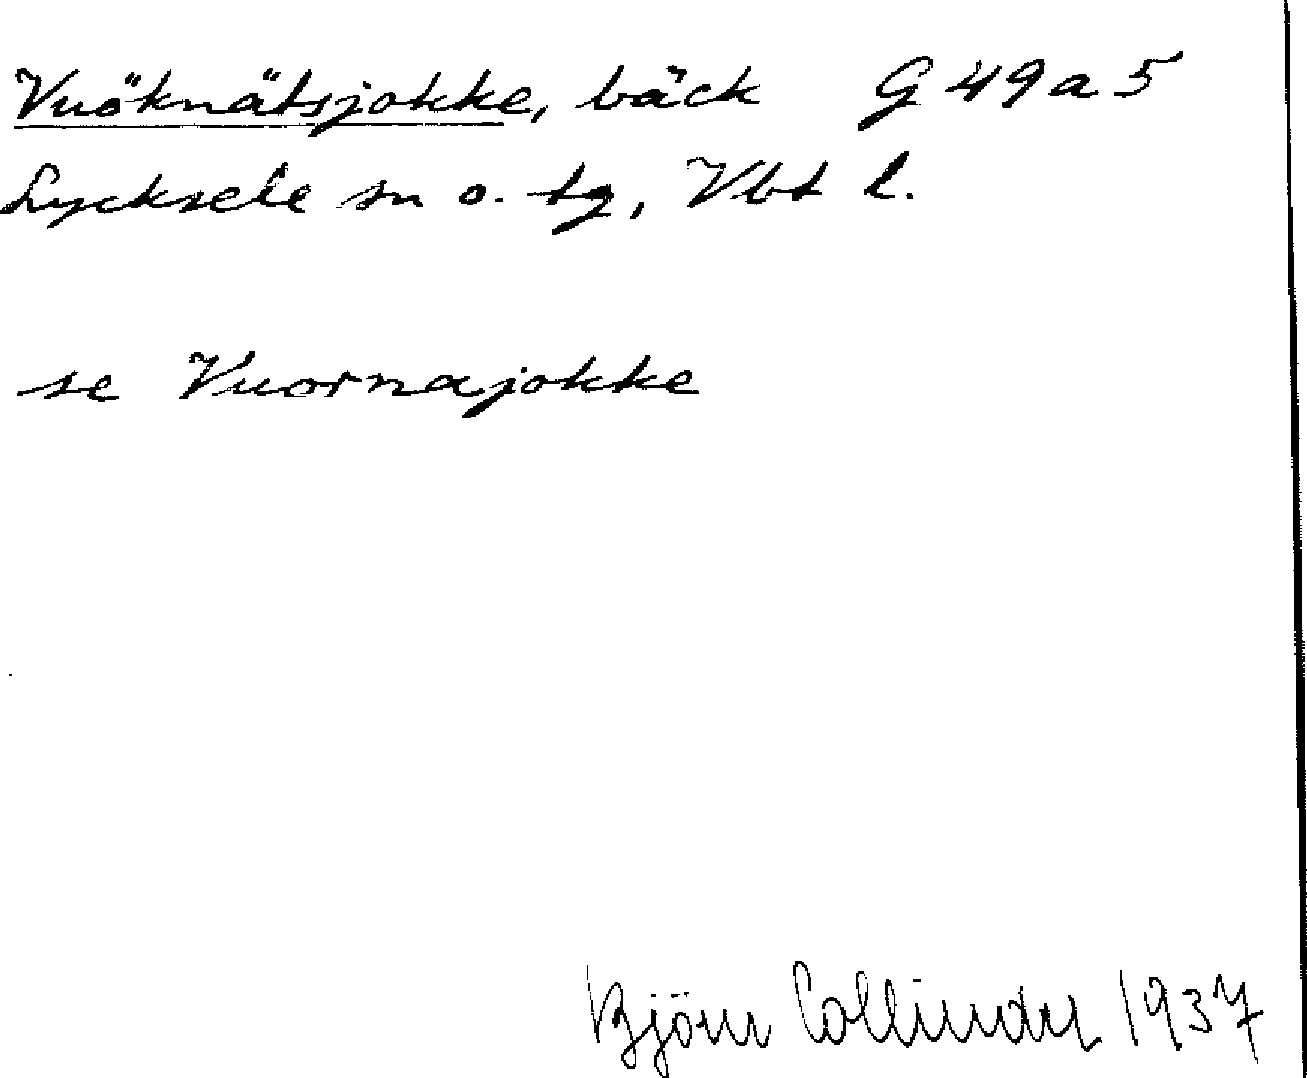 Vuöknätsjokke, bäck G 49 a 5
Lycksele sn o. tg, Vbt l.
se Vuornajokke
Björn Collinder 1937